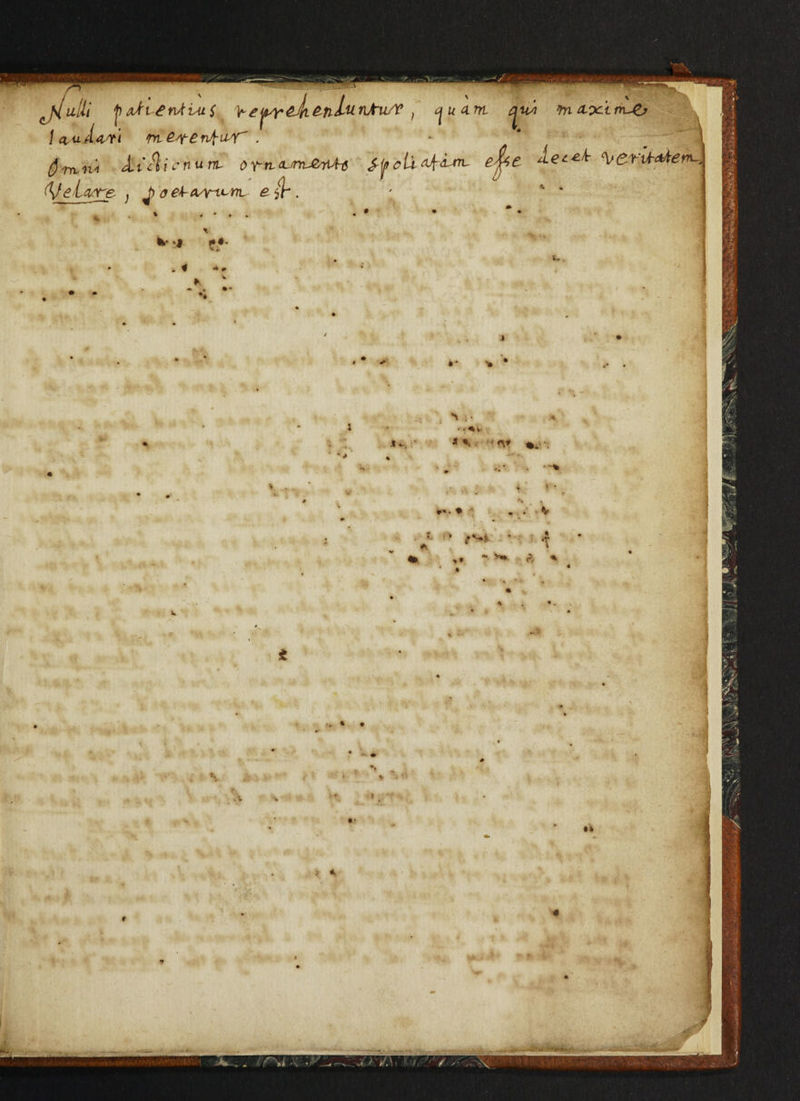 Nulli patientius reprehenduntur, quàm qui maximè
laudari merentur.
Omni dictionum ornamento Spoliatam esse decet Veritatem,
Velare, poetarum est.